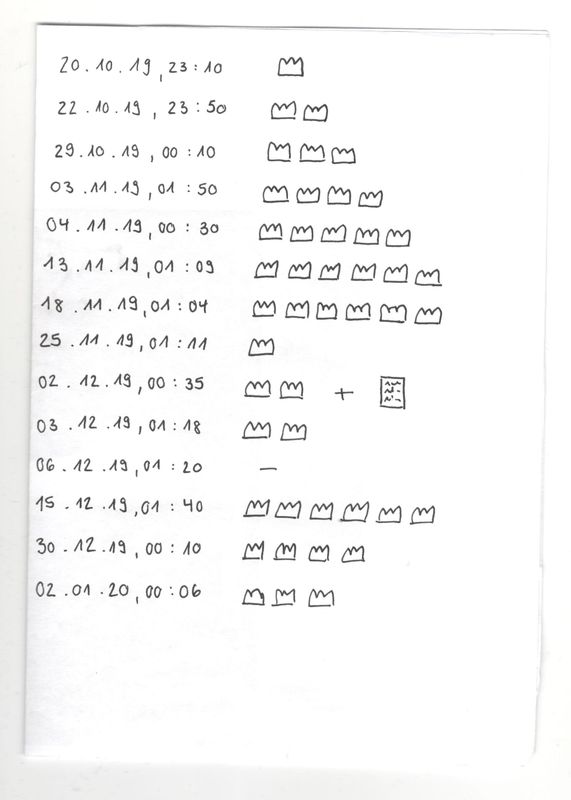 20.10.19, 23:10
22.10.19, 23:50
29.10.19, 00:10
03.11.19, 01:50
04.11.19, 00:30
13.11.19, 01:09
18.11.19, 01:04
25.11.19, 01:11
02.12.19, 00:35 +
03.12.19, 01:18
06.12.19, 01:20 —
15.12.19, 01:40
30.12.19, 00:10
02.01.20, 00:06